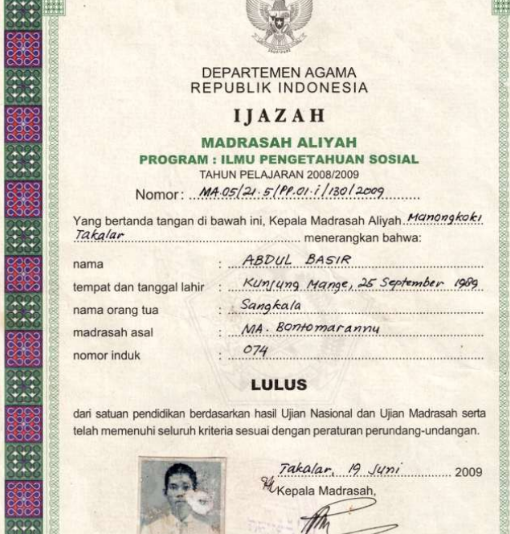 DEPARTEMEN AGAMA
REPUBLIK INDONESIA
IJAZAH
MADRASAH ALIYAH
PROGRAM : ILMU PENGETAHUAN SOSIAL
TAHUN PELAJARAN 2008/2009
Nomor: MA.05/21.5/PP.01.1/130/2009
Yang bertanda tangan di bawah ini, Kepala Madrasah Aliyah Manongkoki
Takalar menerangkan bahwa:
nama : ABDUL BASIR
tempat dan tanggal lahir : Kunjung Mange, 25 September 1989
nama orang tua : Sangkala
madrasah asal : MA. Bontomarannu
nomor induk : 074
LULUS
dari satuan pendidikan berdasarkan hasil Ujian Nasional dan Ujian Madrasah serta
telah memenuhi seluruh kriteria sesuai dengan peraturan perundang-undangan.
Takalar, 19 Juni 2009
Kepala Madrasah,